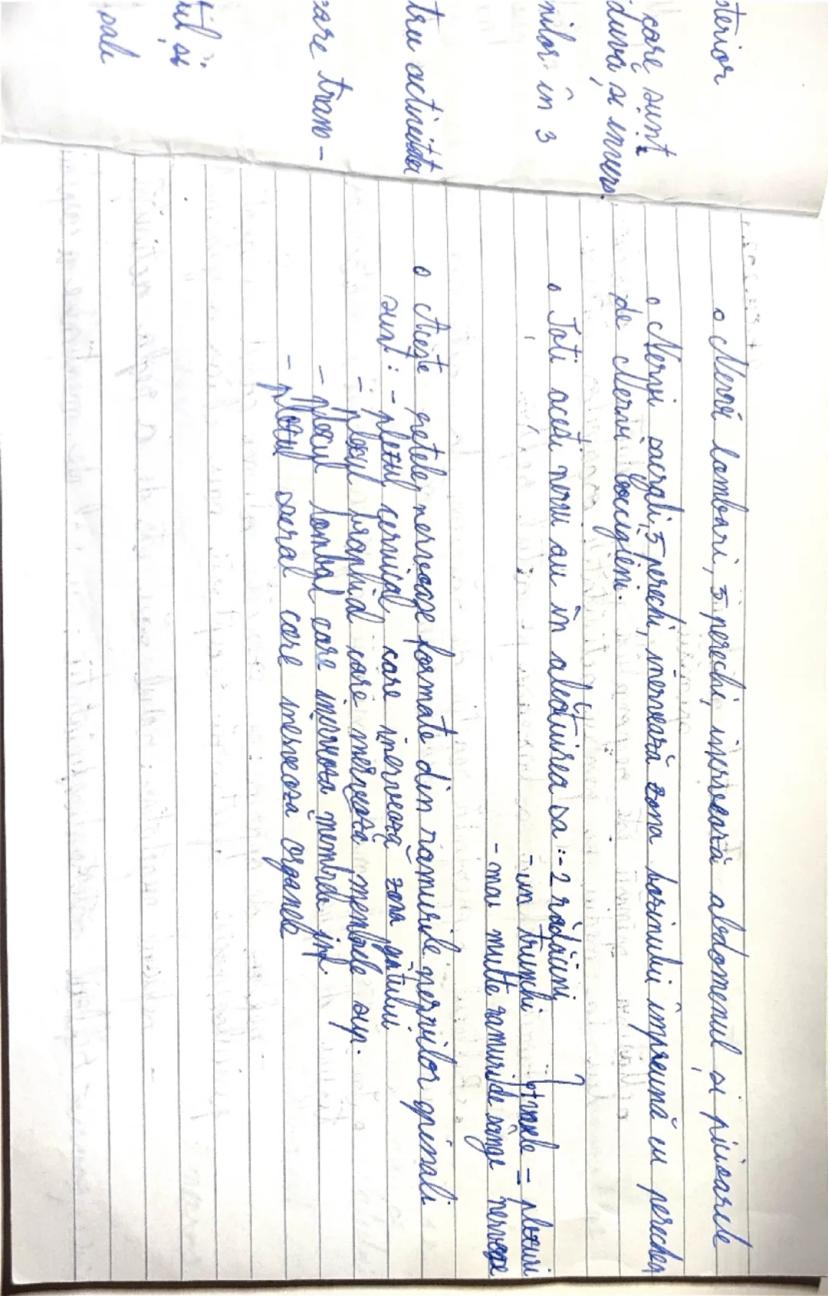 sterior
care sunt
duvă și invers.
nilor în 3
tru activitatea
care tran-
til și
pale
o Nervii lombari, 5 perechi, inervează abdomenul și picioarele
o Nervii sacrali, 5 perechi, inervează zona bazinului împreună cu perechea
de Nervi coccigieni.
o Toti acesti nervi au în alcătuirea sa : - 2 rădăcini
- un trunchi
formele - plexuri
- mai multe ramuri de sânge nervoase
o Aceste rețele nervoase formate din ramurile nervilor spinali
sunt : - plexul cervical care inervează zona gâtului
- plexul brahial care inervează membrele sup.
- plexul lombal care inervează membrele inf.
- plexul sacral care inervează organele